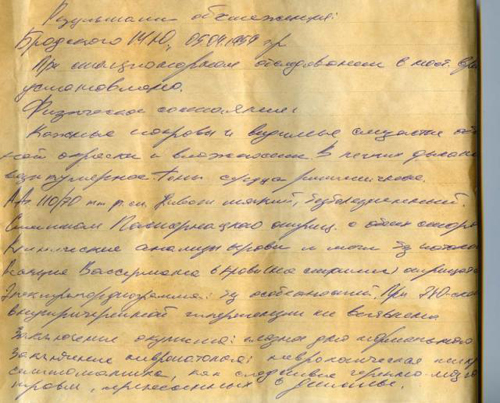 Результаты обследования:
Бродского М.Ю.
При стационарном обследовании в наст. вре
установлено.
Физическое состояние:
Кожные покровы и видимые слизистые об
ной окраски и влажности. В легких дыхан
везикулярное. Тоны сердца ритмичные.
А/Д 110/70 мм рт. ст. Живот мягкий, безболезненный.
Симптом Пастернацкого отриц. с обеих сторо
Клинические анализы крови и мочи без патоло
Реакция Вассермана в крови отрицат
Электрокардиограмма: без особенностей. При ЭХО-ско
внутричерепной гипертензии не выявлено
Заключение окулиста: глазное дно нормального
Заключение невропатолога: неврологическая микр
симптоматика, как следствие черепно-мозго
травмы, перенесенных в